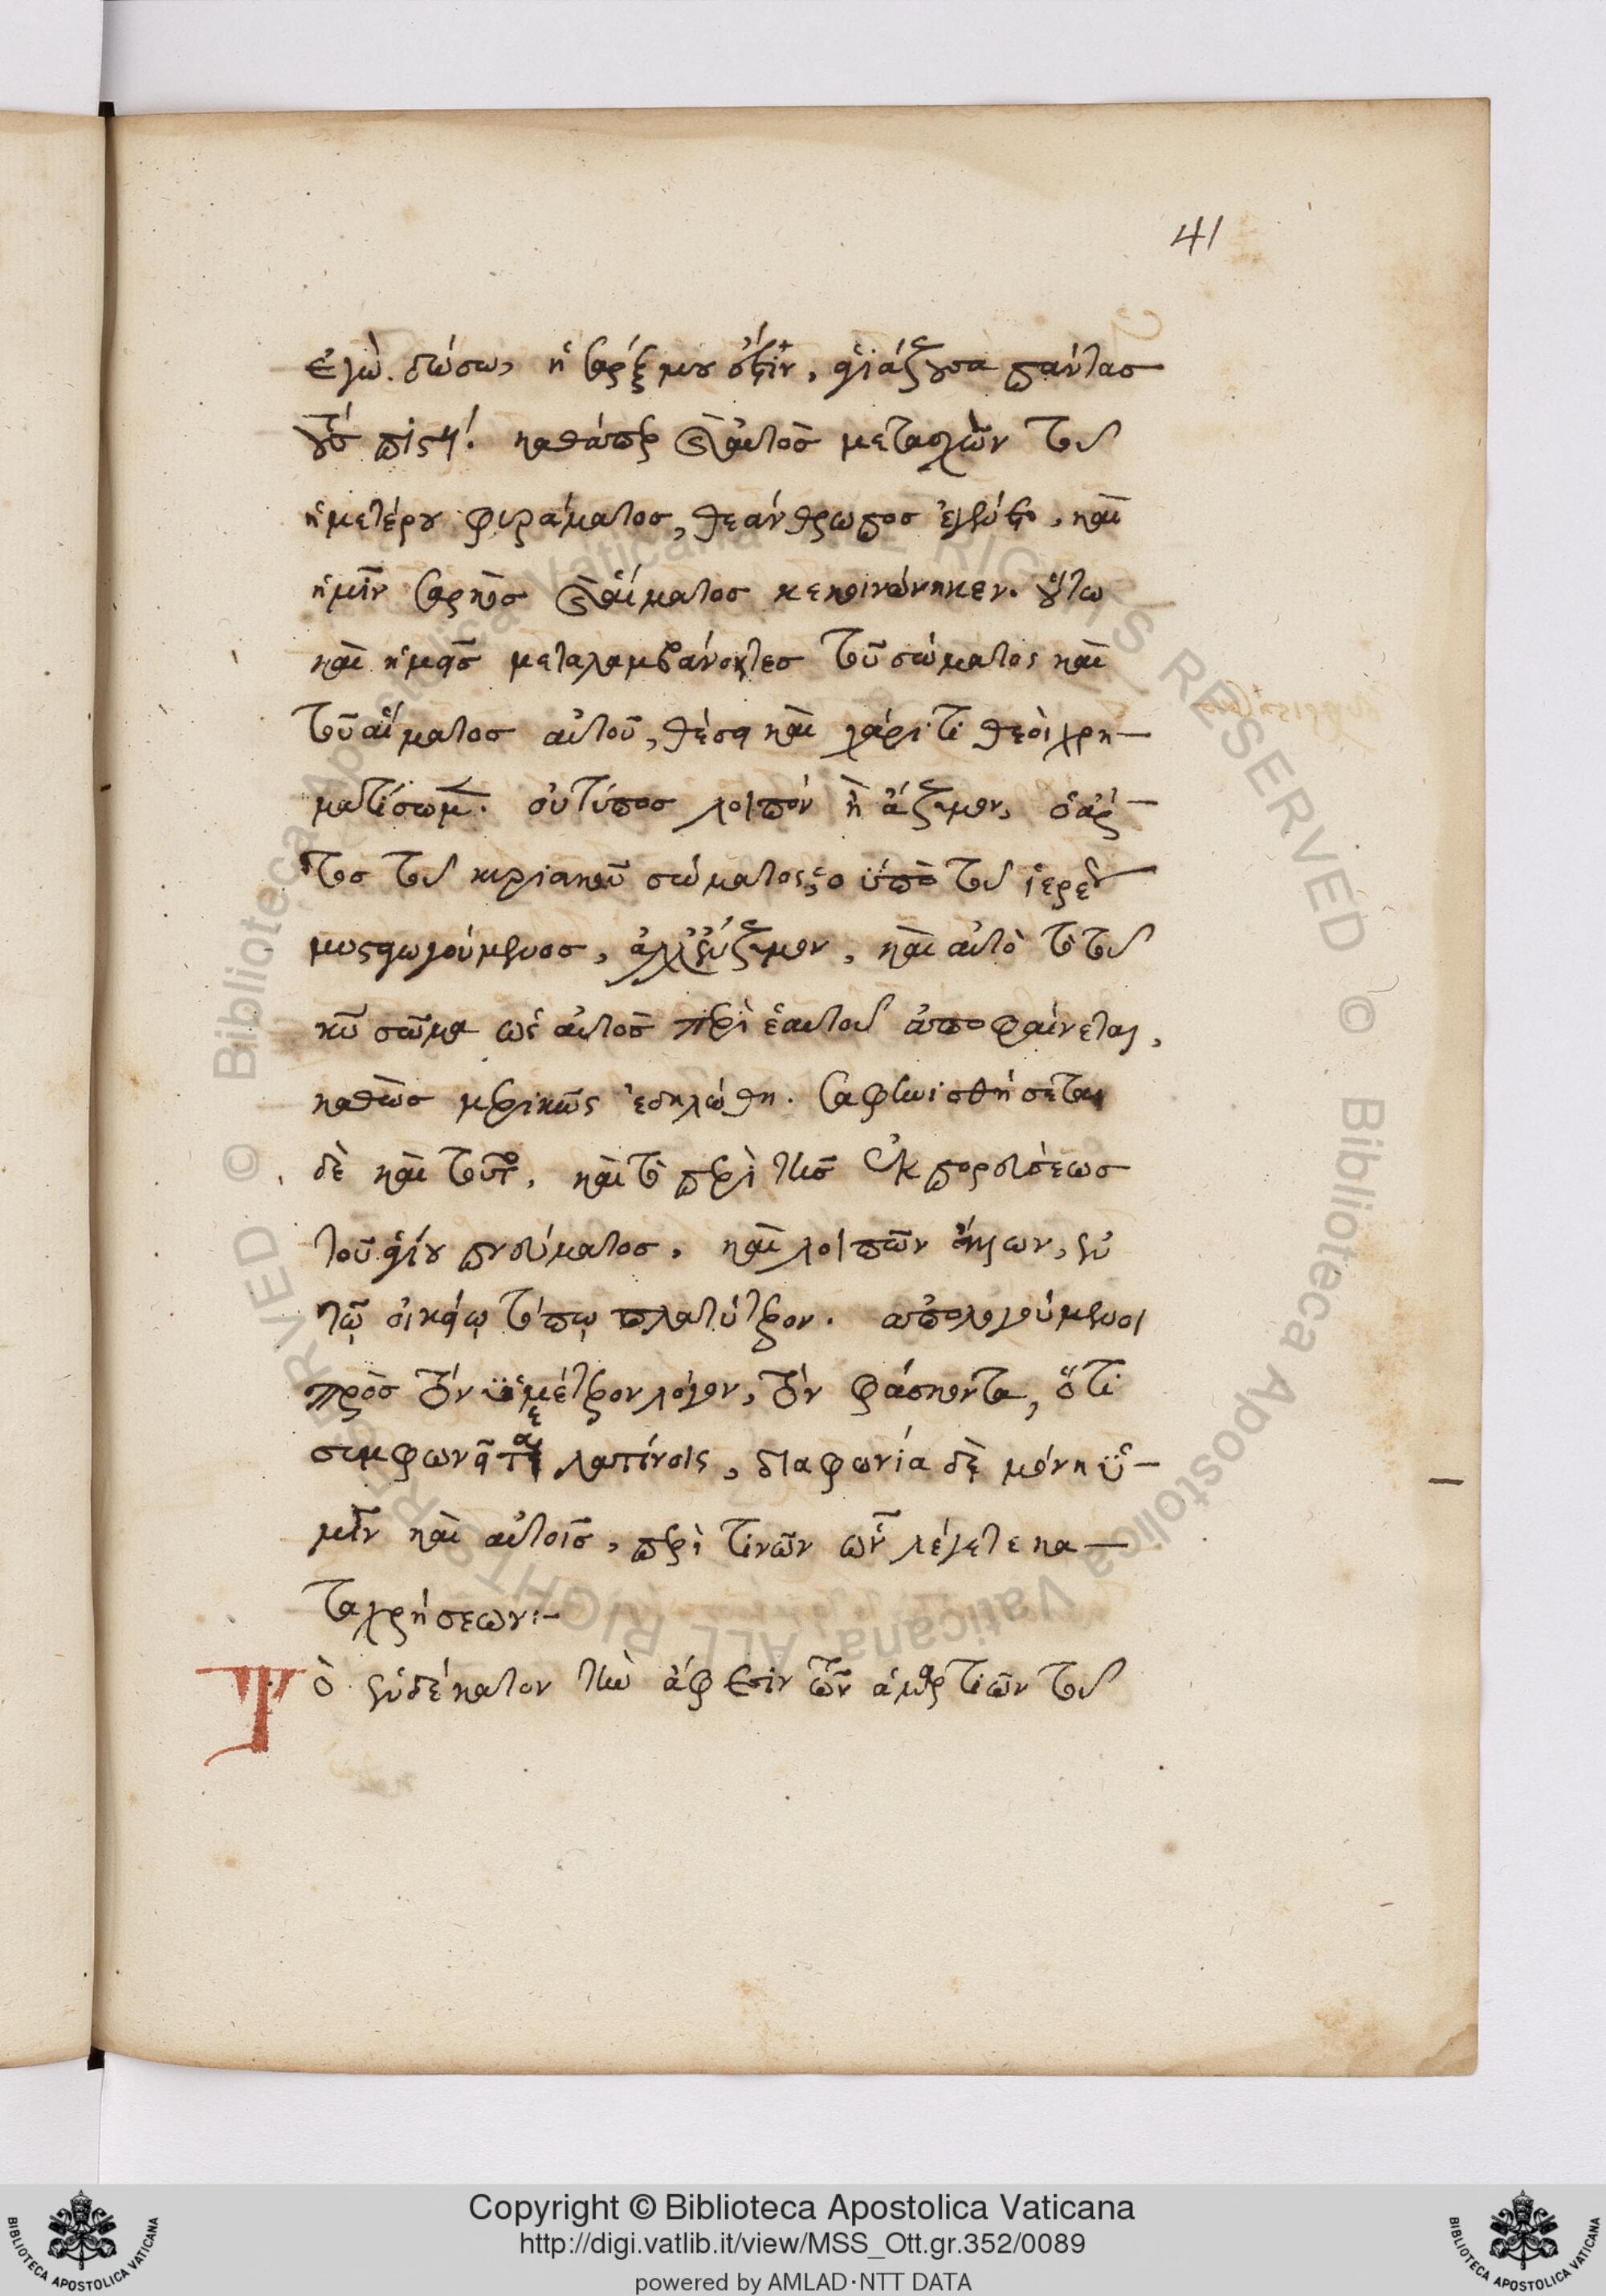 41
ἐγὼ δώσω, ἡ σάρξ μου ἐστὶν, ἁγιάζουσα πάντας
τοὺς πιστούς. καθάπερ καὶ αὐτὸς μετασχὼν τοῦ
ἡμετέρου φυράματος, θεάνθρωπος ἐγένετο, καὶ
ἡμῖν σαρκὸς καὶ αἵματος κεκοινώνηκεν. οὕτω
καὶ ἡμεῖς μεταλαμβάνοντες τοῦ σώματος καὶ
τοῦ αἵματος αὐτοῦ, θέσει καὶ χάριτι θεοὶ χρη-
ματίσωμεν. οὐ τύπος λοιπὸν ἢ ἄζυμον, ὁ ἄρ-
τος τοῦ κυριακοῦ σώματος ὁ ὑπὸ τοῦ ἱερέως
μυσταγωγούμενος, ἀλλ' ἔνζυμον, καὶ αὐτὸ τὸ τοῦ
κυ σῶμα ὡς αὐτὸς περὶ ἑαυτοῦ ἀποφαίνεται,
καθὼς μερικῶς ἐδηλώθη. σαφηνισθήσεται
δὲ καὶ τοῦτο, καὶ τὸ περὶ τῆς ἐκπορεύσεως
τοῦ ἁγίου πνεύματος, καὶ λοιπῶν, ἐν
τῷ οἰκείῳ τόπῳ πλατύτερον. ἀπολογούμενοι
πρὸς τὸν ὑμέτερον λόγον, τὸν φάσκοντα, ὅτι
συμφωνεῖτε λατίνοις, διαφωνία δὲ μόνη ὑ-
μῖν καὶ αὐτοῖς, περὶ τινῶν ὧν λέγετε κα-
ταχρήσεων:-
Τὸ ἑνδέκατον τὴν ἄφεσιν τῶν ἁμαρτιῶν τοῦ
© Biblioteca Apostolica Vaticana ALL RIGHTS RESERVED
Copyright © Biblioteca Apostolica Vaticana
http://digi.vatlib.it/view/MSS_Ott.gr.352/0089
powered by AMLAD·NTT DATA
BIBLIOTECA APOSTOLICA VATICANA
BIBLIOTECA APOSTOLICA VATICANA